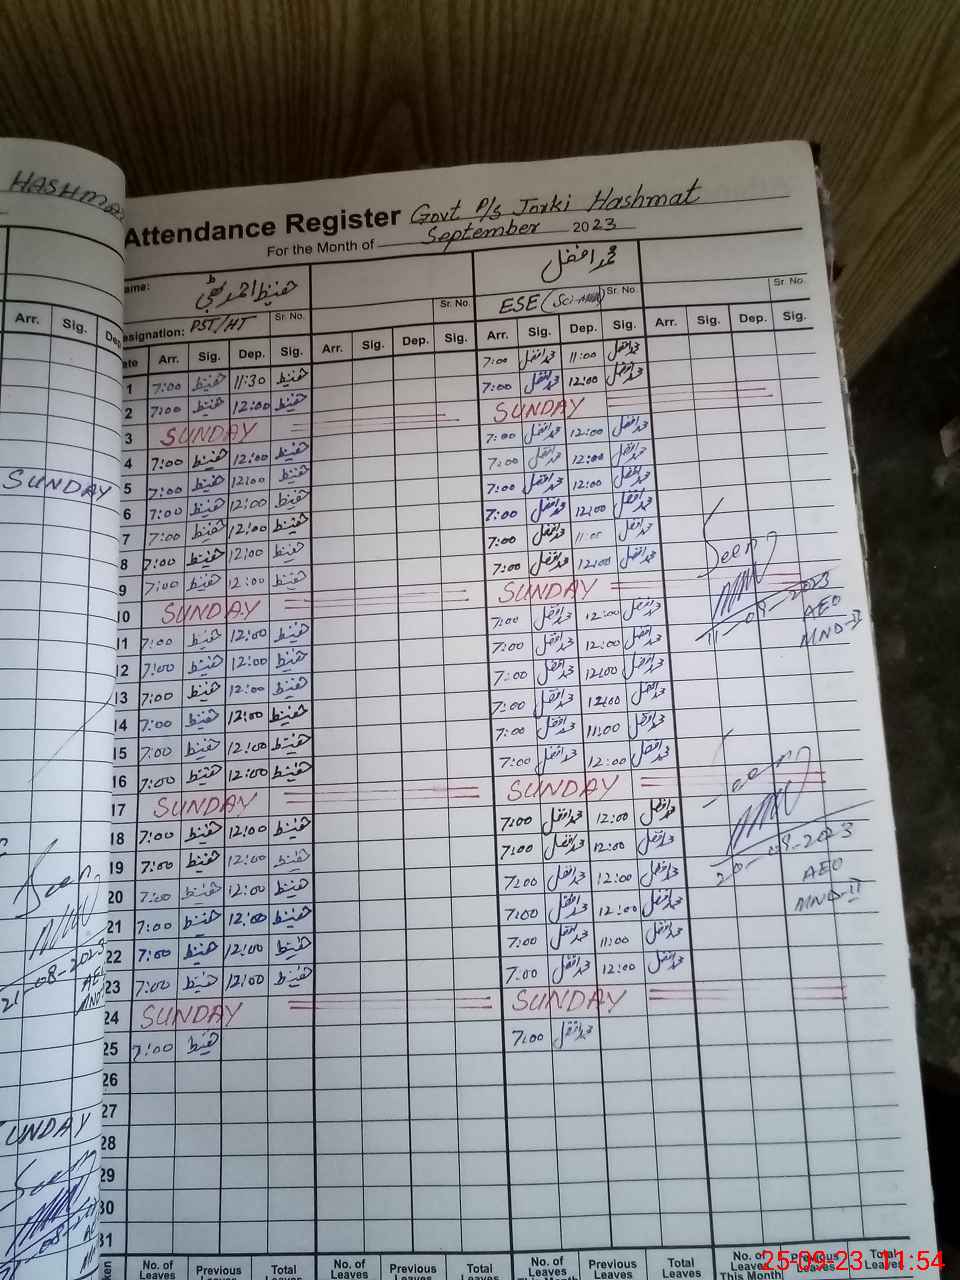 HASHMAT
Attendance Register Govt P/s Jorki Hashmat
For the Month of September 2023
Name: حفیظ احمد بھٹی محمد افضل
Sr. No. Sr. No.
Designation: PST/HT Sr. No. ESE (Sci-Math) Sr. No.
Arr. Sig. Dep.
Date Arr. Sig. Dep. Sig. Arr. Sig. Dep. Sig. Arr. Sig. Dep. Sig. Arr. Sig. Dep. Sig.
1 7:00 حفیظ 11:30 حفیظ 7:00 محمد افضل 11:00 محمد افضل
2 7:00 حفیظ 12:00 حفیظ 7:00 محمد افضل 12:00 محمد افضل
3 SUNDAY SUNDAY
4 7:00 حفیظ 12:00 حفیظ 7:00 محمد افضل 12:00 محمد افضل
SUNDAY
5 7:00 حفیظ 12:00 حفیظ 7:00 محمد افضل 12:00 محمد افضل
6 7:00 حفیظ 12:00 حفیظ 7:00 محمد افضل 12:00 محمد افضل
7 7:00 حفیظ 12:00 حفیظ 7:00 محمد افضل 12:00 محمد افضل
8 7:00 حفیظ 12:00 حفیظ 7:00 محمد افضل 11:00 محمد افضل
9 7:00 حفیظ 12:00 حفیظ 7:00 محمد افضل 12:00 محمد افضل
Seen
10 SUNDAY SUNDAY
11-09-2023
AEO
MND-II
11 7:00 حفیظ 12:00 حفیظ 7:00 محمد افضل 12:00 محمد افضل
12 7:00 حفیظ 12:00 حفیظ 7:00 محمد افضل 12:00 محمد افضل
13 7:00 حفیظ 12:00 حفیظ 7:00 محمد افضل 12:00 محمد افضل
14 7:00 حفیظ 12:00 حفیظ 7:00 محمد افضل 12:00 محمد افضل
15 7:00 حفیظ 12:00 حفیظ 7:00 محمد افضل 11:00 محمد افضل
16 7:00 حفیظ 12:00 حفیظ 7:00 محمد افضل 12:00 محمد افضل
Seen
17 SUNDAY SUNDAY
18 7:00 حفیظ 12:00 حفیظ 7:00 محمد افضل 12:00 محمد افضل
20-09-2023
AEO
MND-II
19 7:00 حفیظ 12:00 حفیظ 7:00 محمد افضل 12:00 محمد افضل
Seen
20 7:00 حفیظ 12:00 حفیظ 7:00 محمد افضل 12:00 محمد افضل
21 7:00 حفیظ 12:00 حفیظ 7:00 محمد افضل 12:00 محمد افضل
22 7:00 حفیظ 12:00 حفیظ 7:00 محمد افضل 11:00 محمد افضل
21-08-2023
23 7:00 حفیظ 12:00 حفیظ 7:00 محمد افضل 12:00 محمد افضل
24 SUNDAY SUNDAY
25 7:00 حفیظ 7:00 محمد افضل
26
27
SUNDAY
28
29
Seen
30
31
No. of Leaves Previous Leaves Total Leaves No. of Leaves Previous Leaves Total Leaves No. of Leaves This Month Previous Leaves Total Leaves No. of Leaves This Month Previous Leaves Total Leaves
25-09-23 11:54